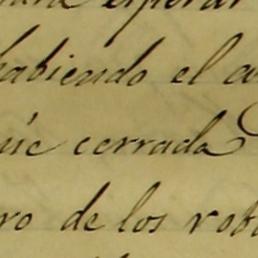 esperar
habiendo el
cerrada
ro de los rob